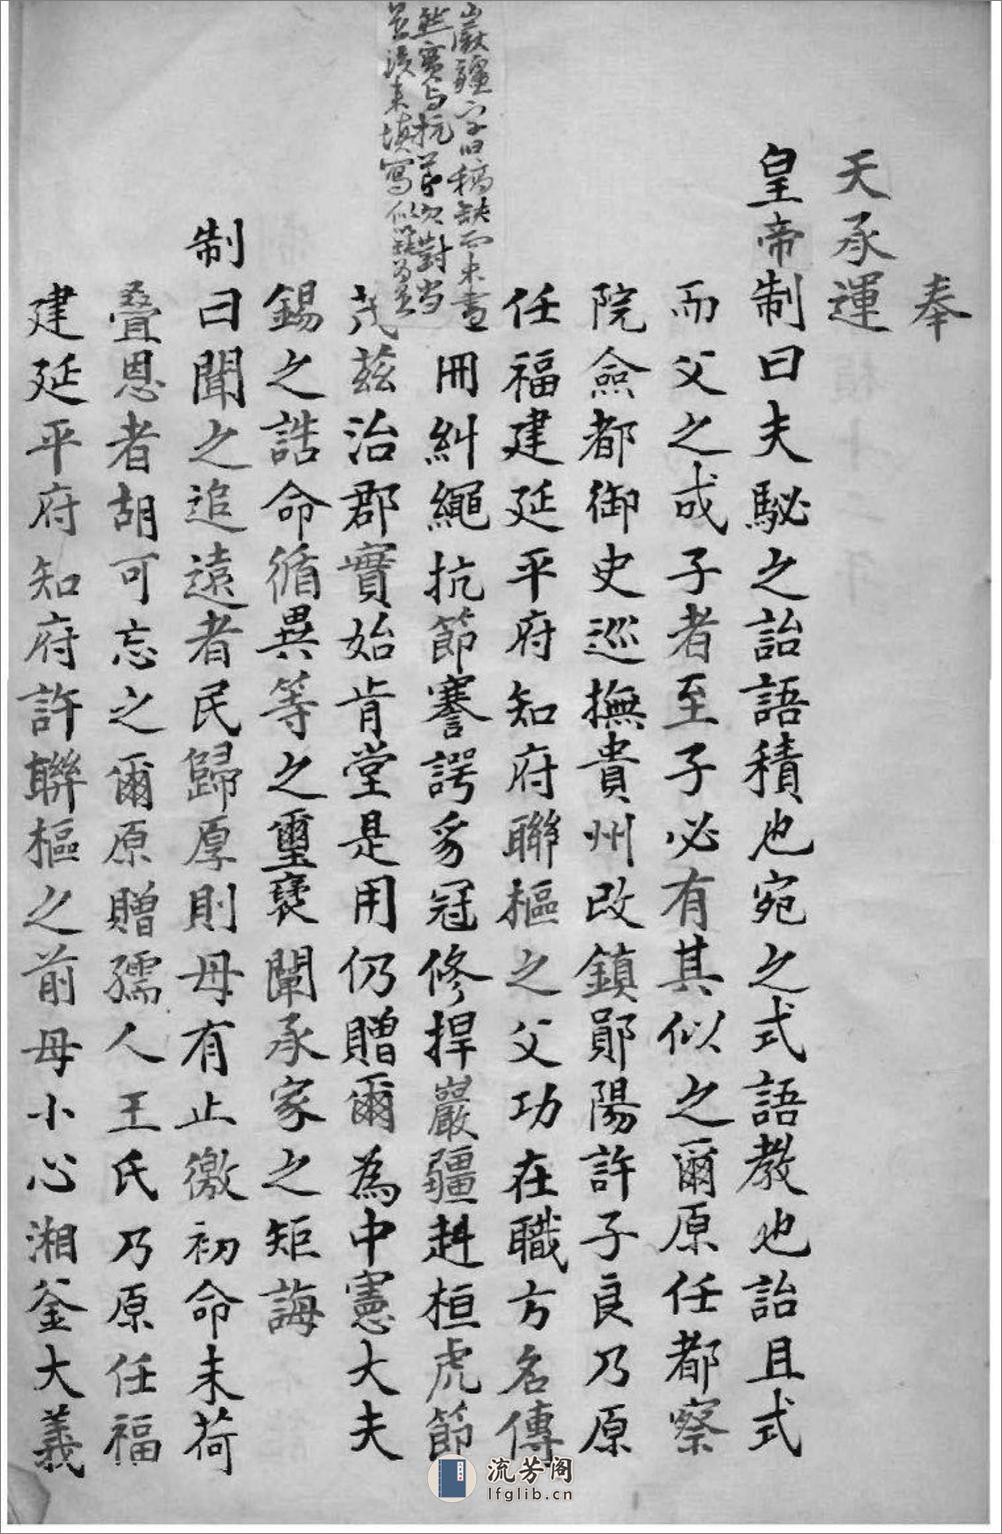 奉
天承運
皇帝制曰夫駜之詒語積也宛之式語教也詒且式
而父之成子者至子必有其似之爾原任都察
院僉都御史巡撫貴州改鎮鄖陽許子良乃原
任福建延平府知府聯樞之父功在職方名傳
冊糾繩抗節謇諤豸冠修捍巖疆赳桓虎節
茂茲治郡實始肯堂是用仍贈爾為中憲大夫
錫之誥命循異等之璽褒闡承家之矩誨
制曰聞之追遠者民歸厚則母有止徼初命未荷
疊恩者胡可忘之爾原贈孺人王氏乃原任福
建延平府知府許聯樞之前母小心湘釜大義
巖疆二字旧稿缺而未書
流芳阁
lfglib.cn